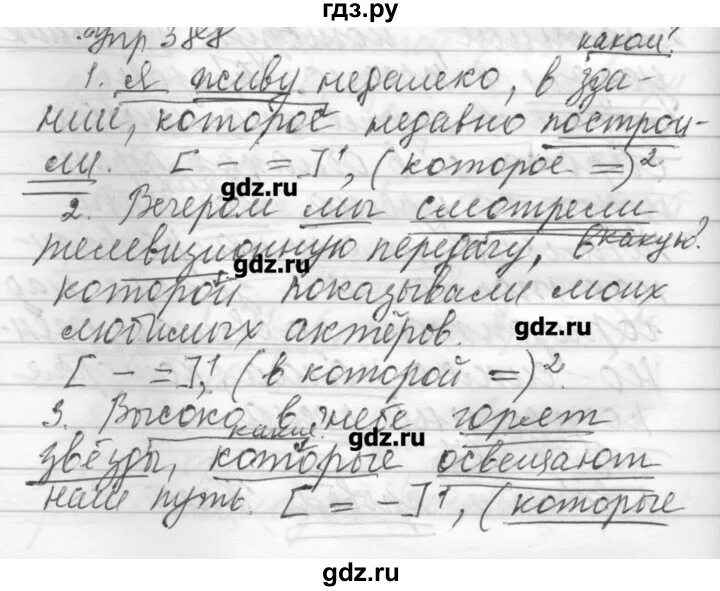 гдз.ру
Упр 388
каком?
1. Я живу недалеко, в зда-
нии, которое недавно построи-
ли. [ - = ]¹, (которое =)²
gdz.ru
2. Вечером мы смотрели
телевизионную передачу, в какую?
gdz.ru
которой показывали моих
любимых актёров.
gdz.ru
[ - = ],¹ (в которой =)².
3. Высоко в небе горят
какие?
gdz.ru
звёзды, которые освещают
наш путь. [ = - ]¹, (которые
gdz.ru